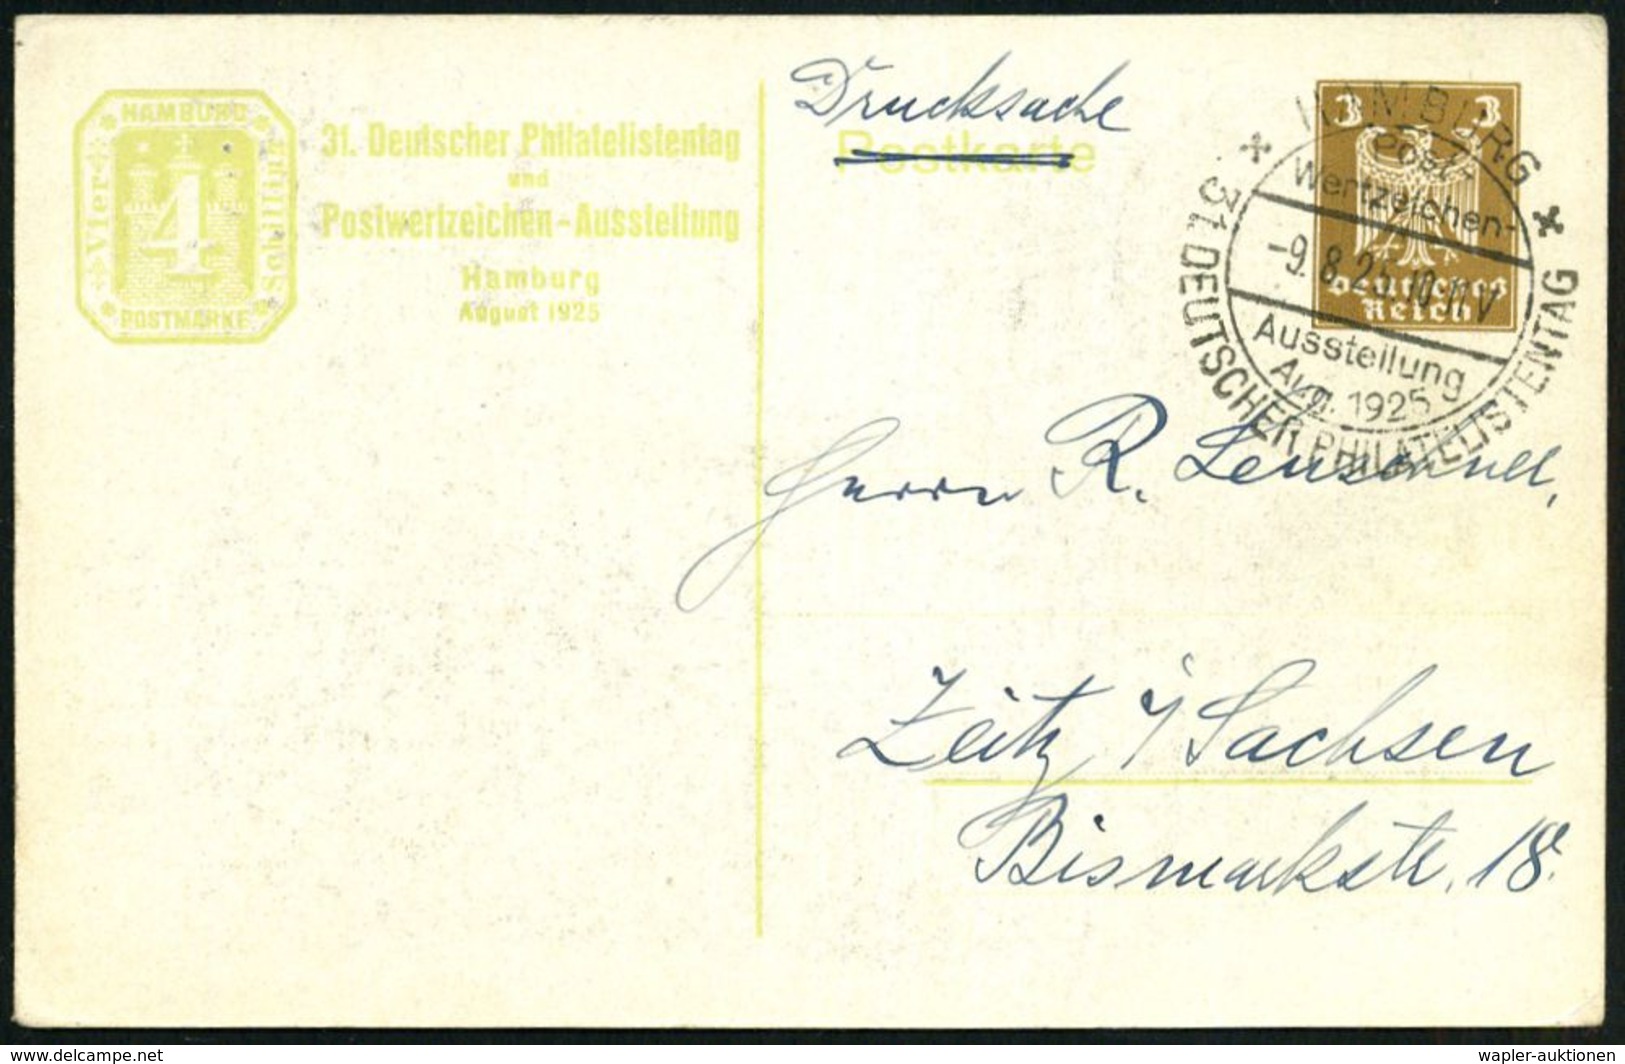 HAMBURG
Vier
4
Schilling
POSTMARKE
31. Deutscher Philatelistentag
und
Postwertzeichen-Ausstellung
Hamburg
August 1925
Drucksache
Postkarte
3 3
Deutsches
Reich
HAMBURG
Post-
Wertzeichen-
-9.8.25.10-11V
Ausstellung
Aug. 1925
31. DEUTSCHER PHILATELISTENTAG
Herrn R.
Zeitz i/Sachsen
Bismarkstr. 18.
www.delcampe.net
wapler-auktionen